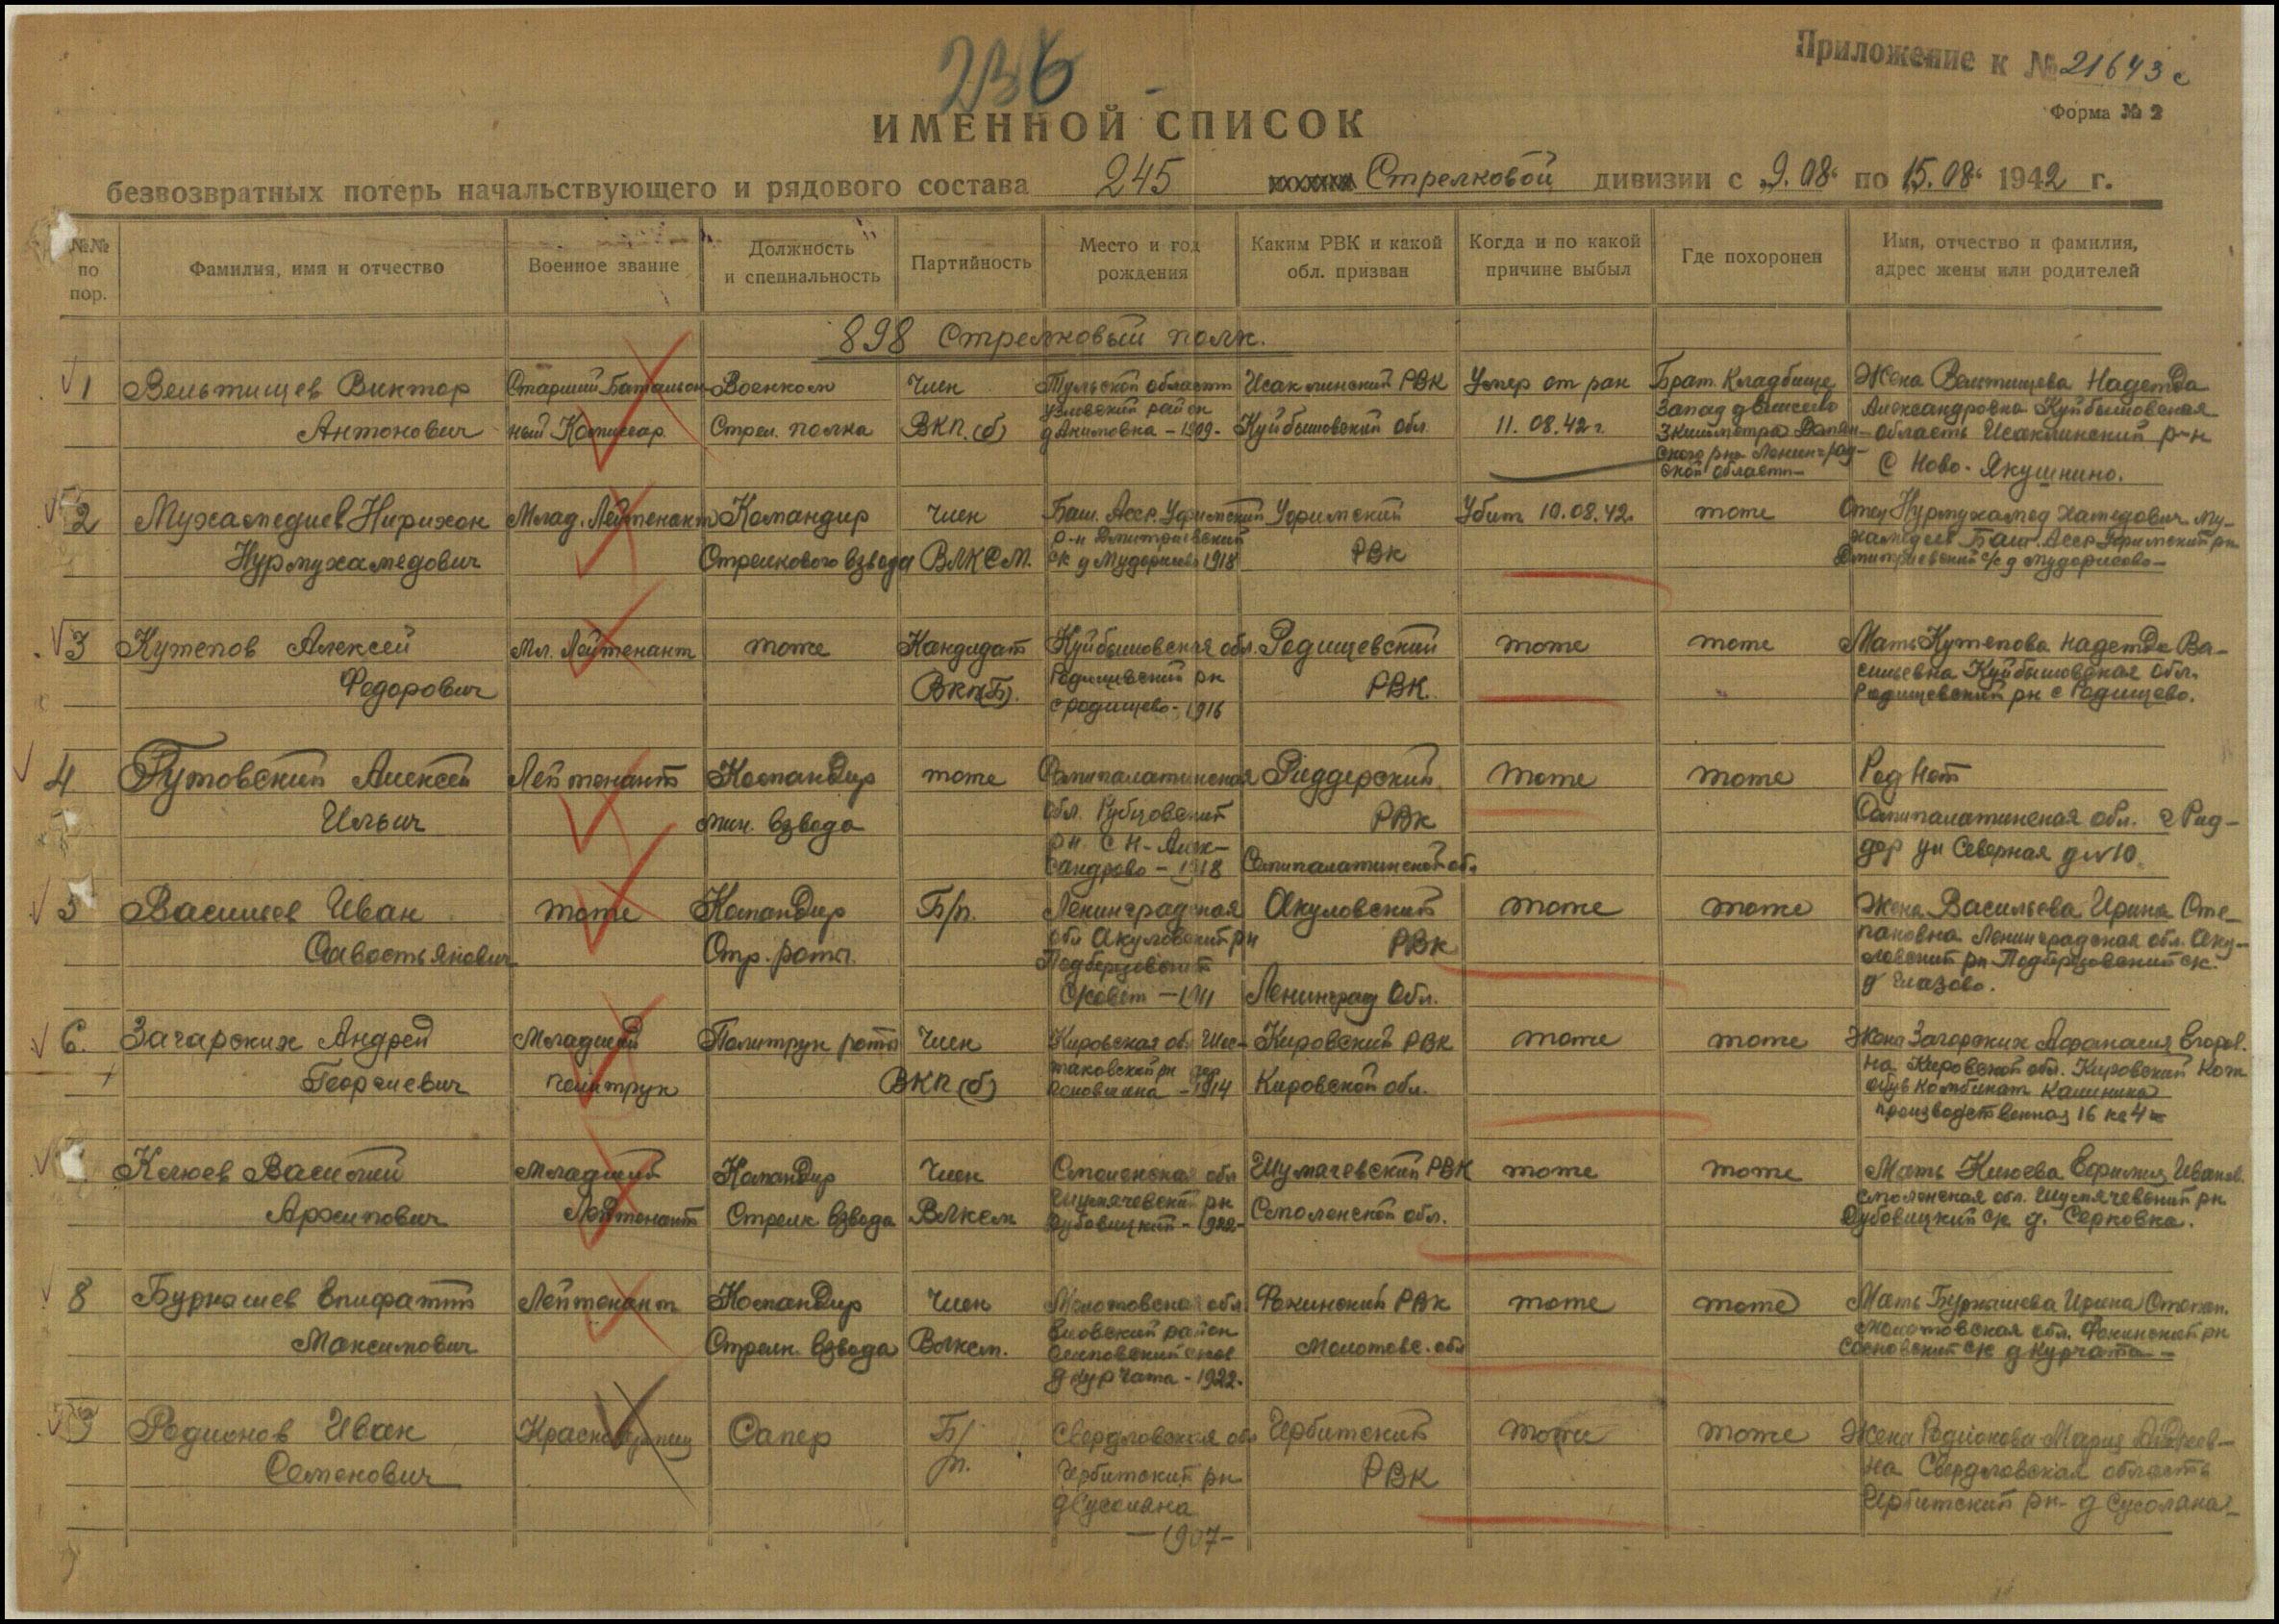 236
Приложение к № 21643 с
Форма № 2
ИМЕННОЙ СПИСОК
безвозвратных потерь начальствующего и рядового состава 245 Стрелковой дивизии с 9.08 по 15.08 1942 г.
№№ по пор.
Фамилия, имя и отчество
Военное звание
Должность и специальность
Партийность
Место и год рождения
Каким РВК и какой обл. призван
Когда и по какой причине выбыл
Где похоронен
Имя, отчество и фамилия, адрес жены или родителей
898 Стрелковый полк.
1 Вельтищев Виктор Старший Батальон- Военком Член Тульской области Исаклинский РВК Умер от ран Брат. Кладбище Жена Вельтищева Надежда
Узловский район Запад
Антонович ный Комиссар Стрел. полка ВКП(б) д Акимовка - 1909 - Куйбышовский обл. 11.08.42 г. 3 километра Александровна Куйбышовская
ского р-на Ленинград- область Исаклинский р-н
ской области- С Ново-Якушкино.
2 Мухамедиев Нирихон Млад. Лейтенант Командир Член Баш. Асср. Уфимский Уфимский Убит 10.08.42. тоже Отец Нурмухамед Хамедович Му-
р-н Дмитриевский хамедиев Баш. Асср Уфимский рн
Нурмухамедович Стрелкового взвода ВЛКСМ. ск д 1918 РВК Дмитриевский с/с д Мударисово-
3 Кутепов Алексей Мл. Лейтенант тоже Кандидат Куйбышовская обл. Радищевский тоже тоже Мать Кутепова Надежда Ва-
Федорович ВКП(Б). Радищевский рн РВК. сильевна Куйбышовская обл.
с радищево - 1916 Радищевский рн с Радищево.
4 Гутовский Алексей Лейтенант Командир тоже Самипалатинская Риддерский тоже тоже Род Нет
Ильич мин. взвода обл. Рубцовский РВК Самипалатинская обл. г Рид-
рн. с Н-Алек- дер ул Северная д №10.
сандрово - 1918 Самипалатинской обл.
5 Васильев Иван тоже Командир Б/п. Ленинградская Окуловский тоже тоже Жена Васильева Ирина Сте-
Савостьянович Стр. роты. обл Окуловский рн РВК пановна Ленинградская обл. Оку-
Подберезовский ловский рн Подберезовский ск.
Сковет - 1911 Ленинград Обл. д Глазово.
6. Загарских Андрей Младший Политрук роты Член Кировская об. Шес- Кировский РВК тоже тоже Жена Загарских Афанасия Егоров.
Георгиевич политрук ВКП(б) таковский рн дер - 1914 Кировской обл. на Кировской обл. Кировский Кож
обув комбинат Калинина
производственная 16 кв 4
Клюев Василий Младший Командир Член Смоленская обл Шумячевский РВК тоже тоже Мать Клюева Ефимия Иванов.
Шумячевский рн Смоленская обл. Шумячевский рн.
Архипович Лейтенант Стрелк взвода Влксм Дубовицкий - 1922- Смоленской обл. Дубовицкий ск д. Серковка.
8 Буркашев Епифатий Лейтенант Командир Член Молотовская обл Фокинский РВК тоже тоже Мать Буркашева Ирина Степан.
Еловский район Молотовская обл. Фокинский рн
Максимович Стрелк. взвода Влксм. Молотовс. обл Сосновский ск д Курчата -
д Курчата - 1922.
9 Родионов Иван Красноармеец Сапер Б/п. Свердловская обл Ирбитский тоже тоже Жена Родионова Мария Андреев-
Семенович Ирбитский рн РВК на Свердловская область
д Сусолана Ирбитский рн- д Сусолана-
- 1907 -